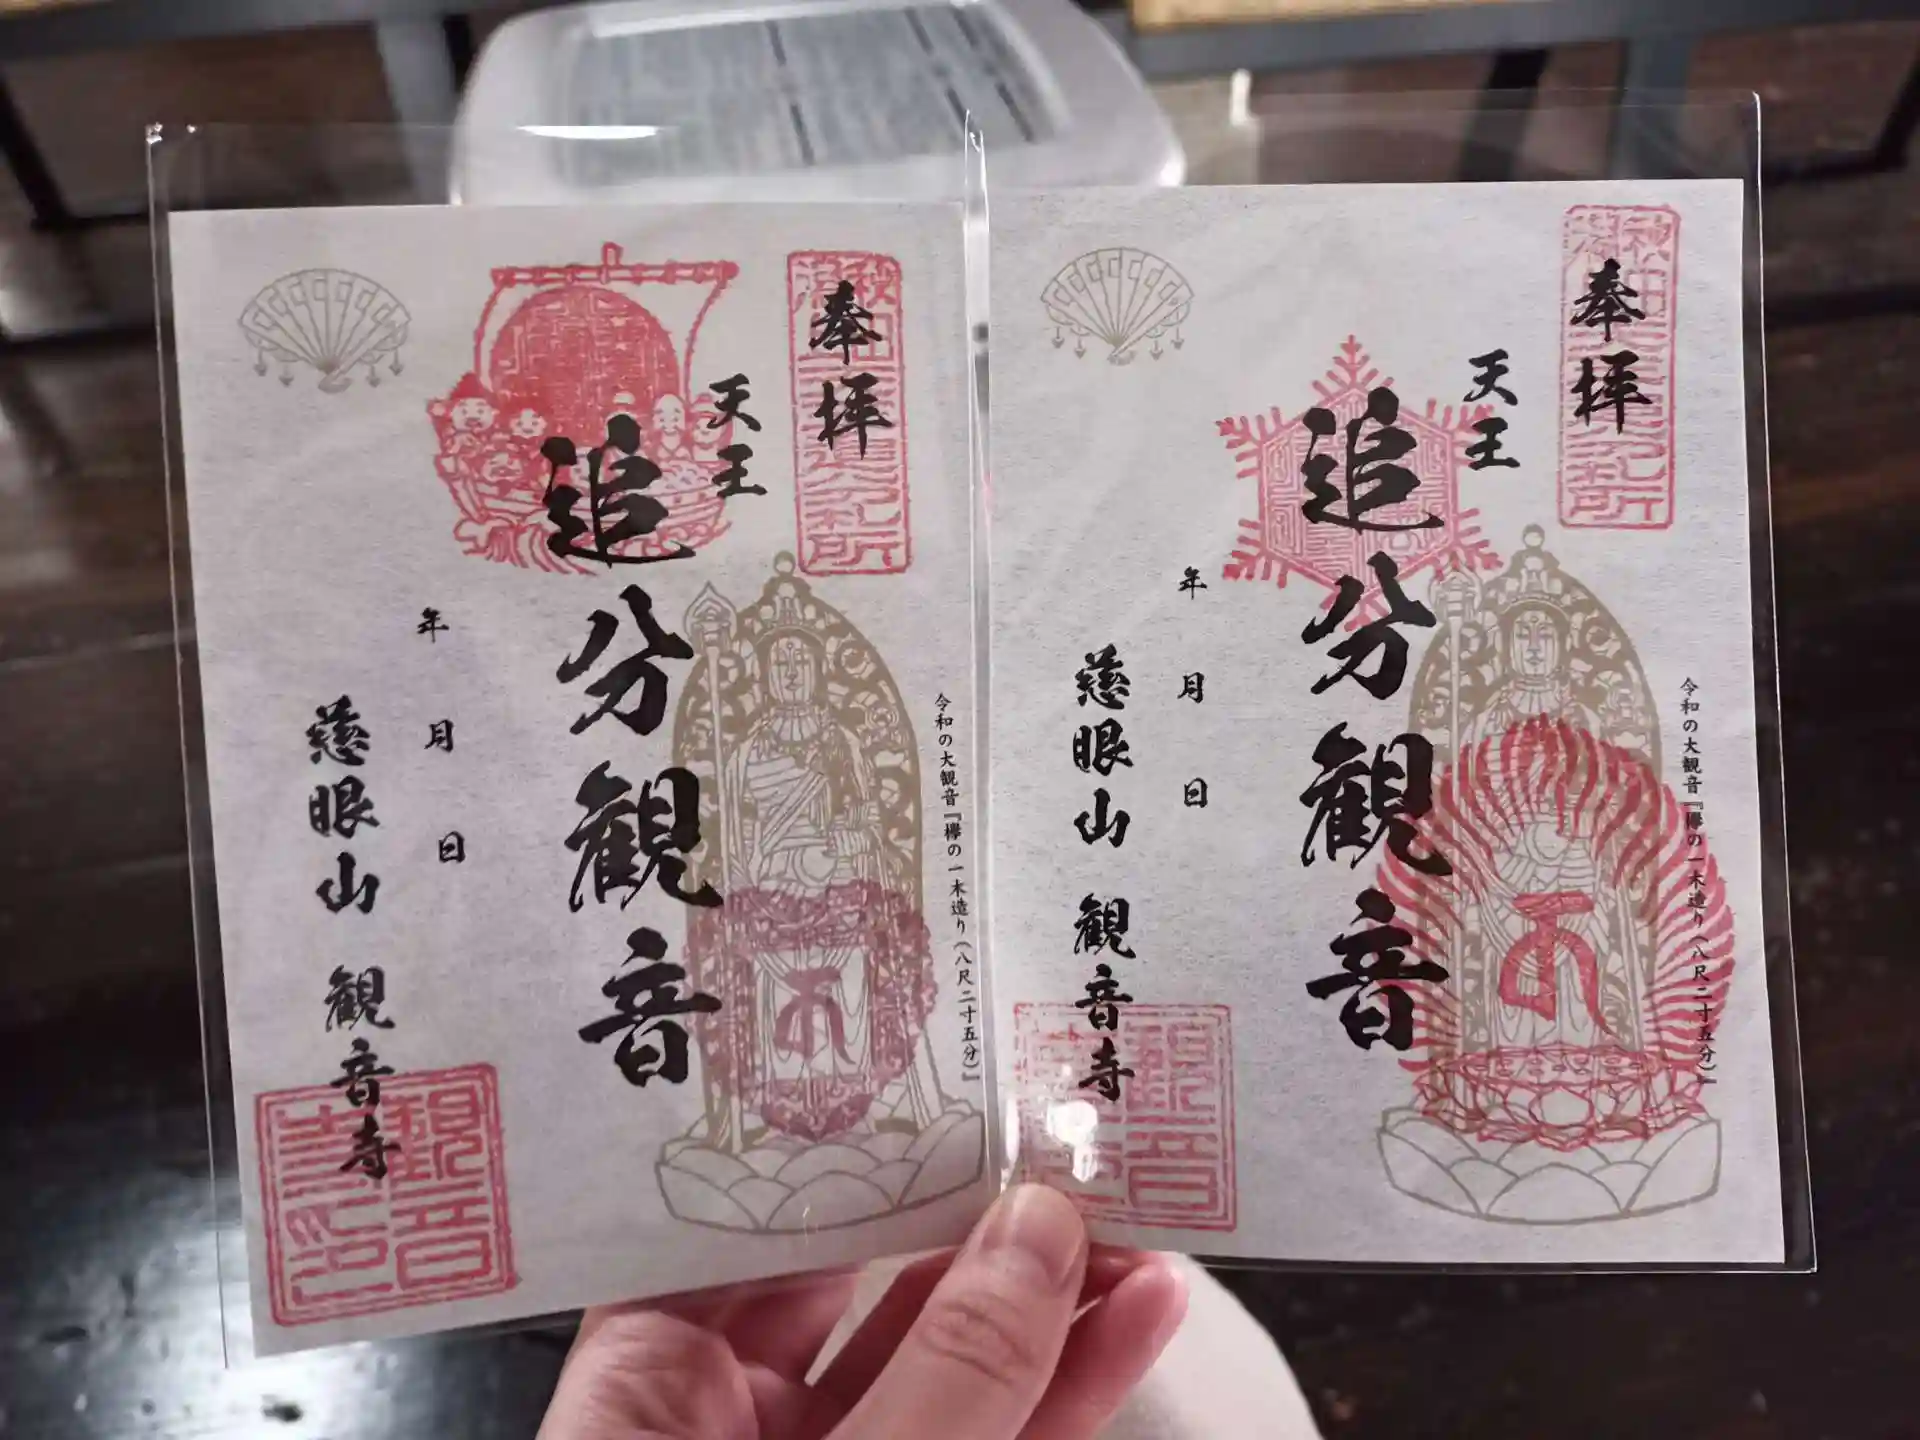 奉拝
天王
追分観音
令和の大観音『欅の一木造り(八尺二寸五分)』
年 月 日
慈眼山 観音寺
奉拝
天王
追分観音
令和の大観音『欅の一木造り(八尺二寸五分)』
年 月 日
慈眼山 観音寺